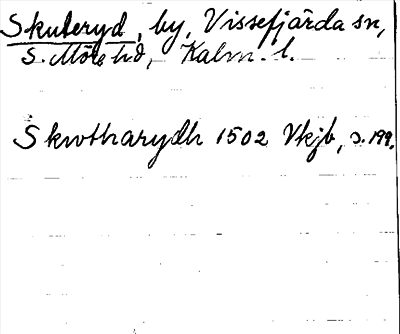 Skuteryd, by, Vissefjärda sn,
S. Möre hd, Kalm. l.
Skwttharydh 1502 Vkjb, s. 199.